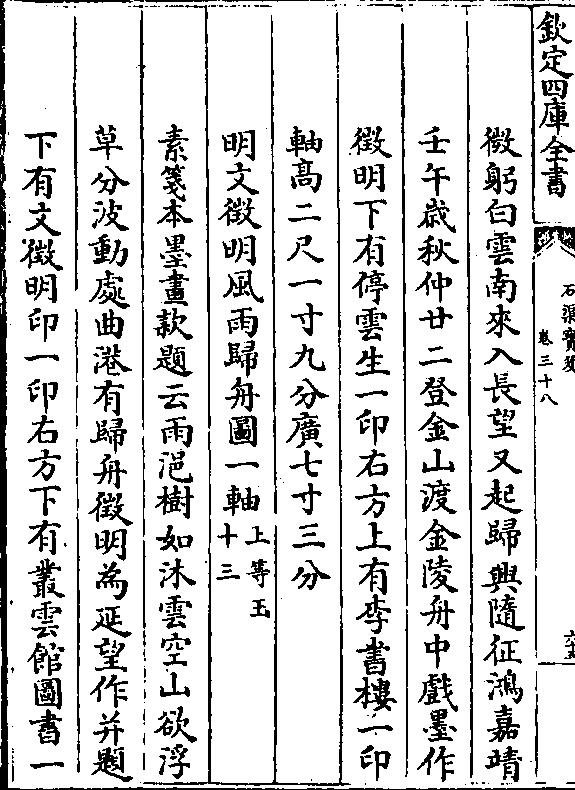 欽定四庫全書
石渠寶笈
卷三十八
微躬白雲南來入長望又起歸興隨征鴻嘉靖
壬午歳秋仲廿二登金山渡金陵舟中戲墨作
徵明下有停雲生一印右方上有李書樓一印
軸髙二尺一寸九分廣七寸三分
明文徵明風雨歸舟圖一軸上等玉
十三
素箋本墨畫款題云雨浥樹如沐雲空山欲浮
草分波動處曲港有歸舟徵明為延望作并題
下有文徵明印一印右方下有叢雲館圖書一